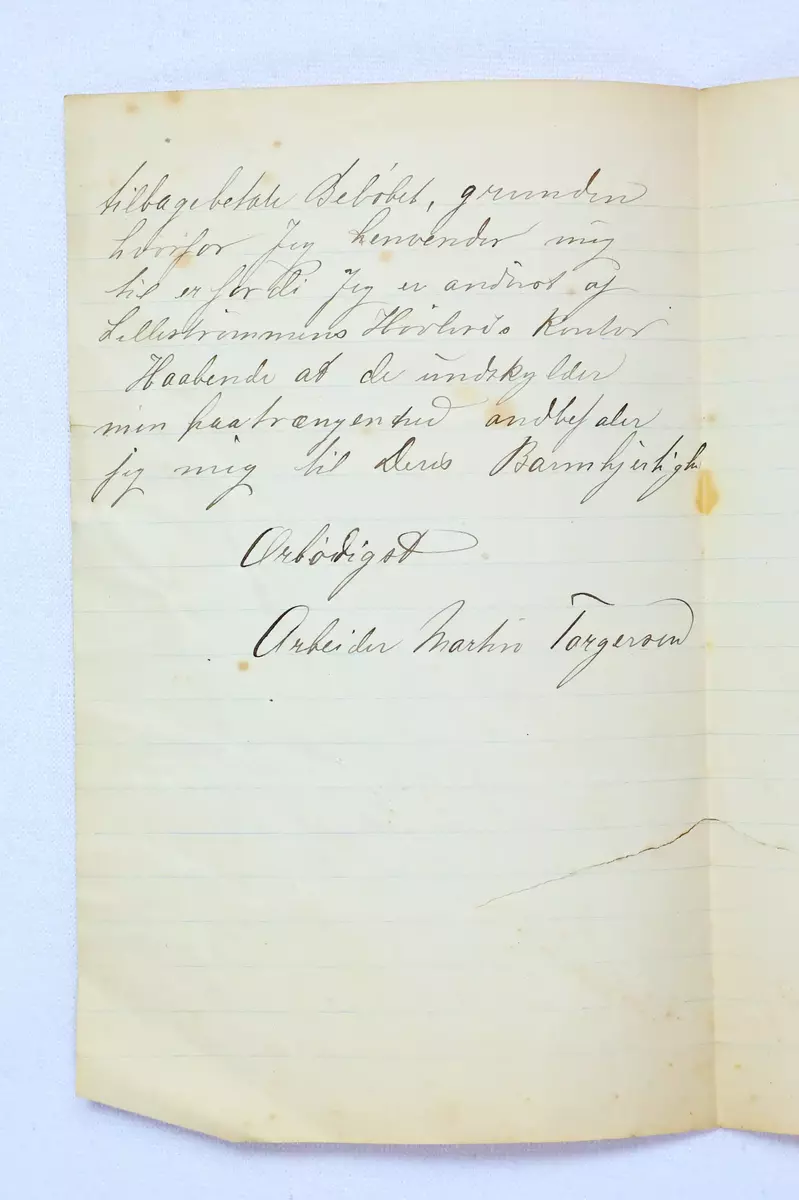 tilbagebetale Beløbet, grunden
hvorfor Jeg henvender mig
til er fordi Jeg er andvist af
Lillestrømmens Høvleris Kontor
Haabende at de undskylder
min paatrængenhed andbefaler
jeg mig til Deris Barmhjertighe
Ærbødigst
Arbeider Martin Torgersen